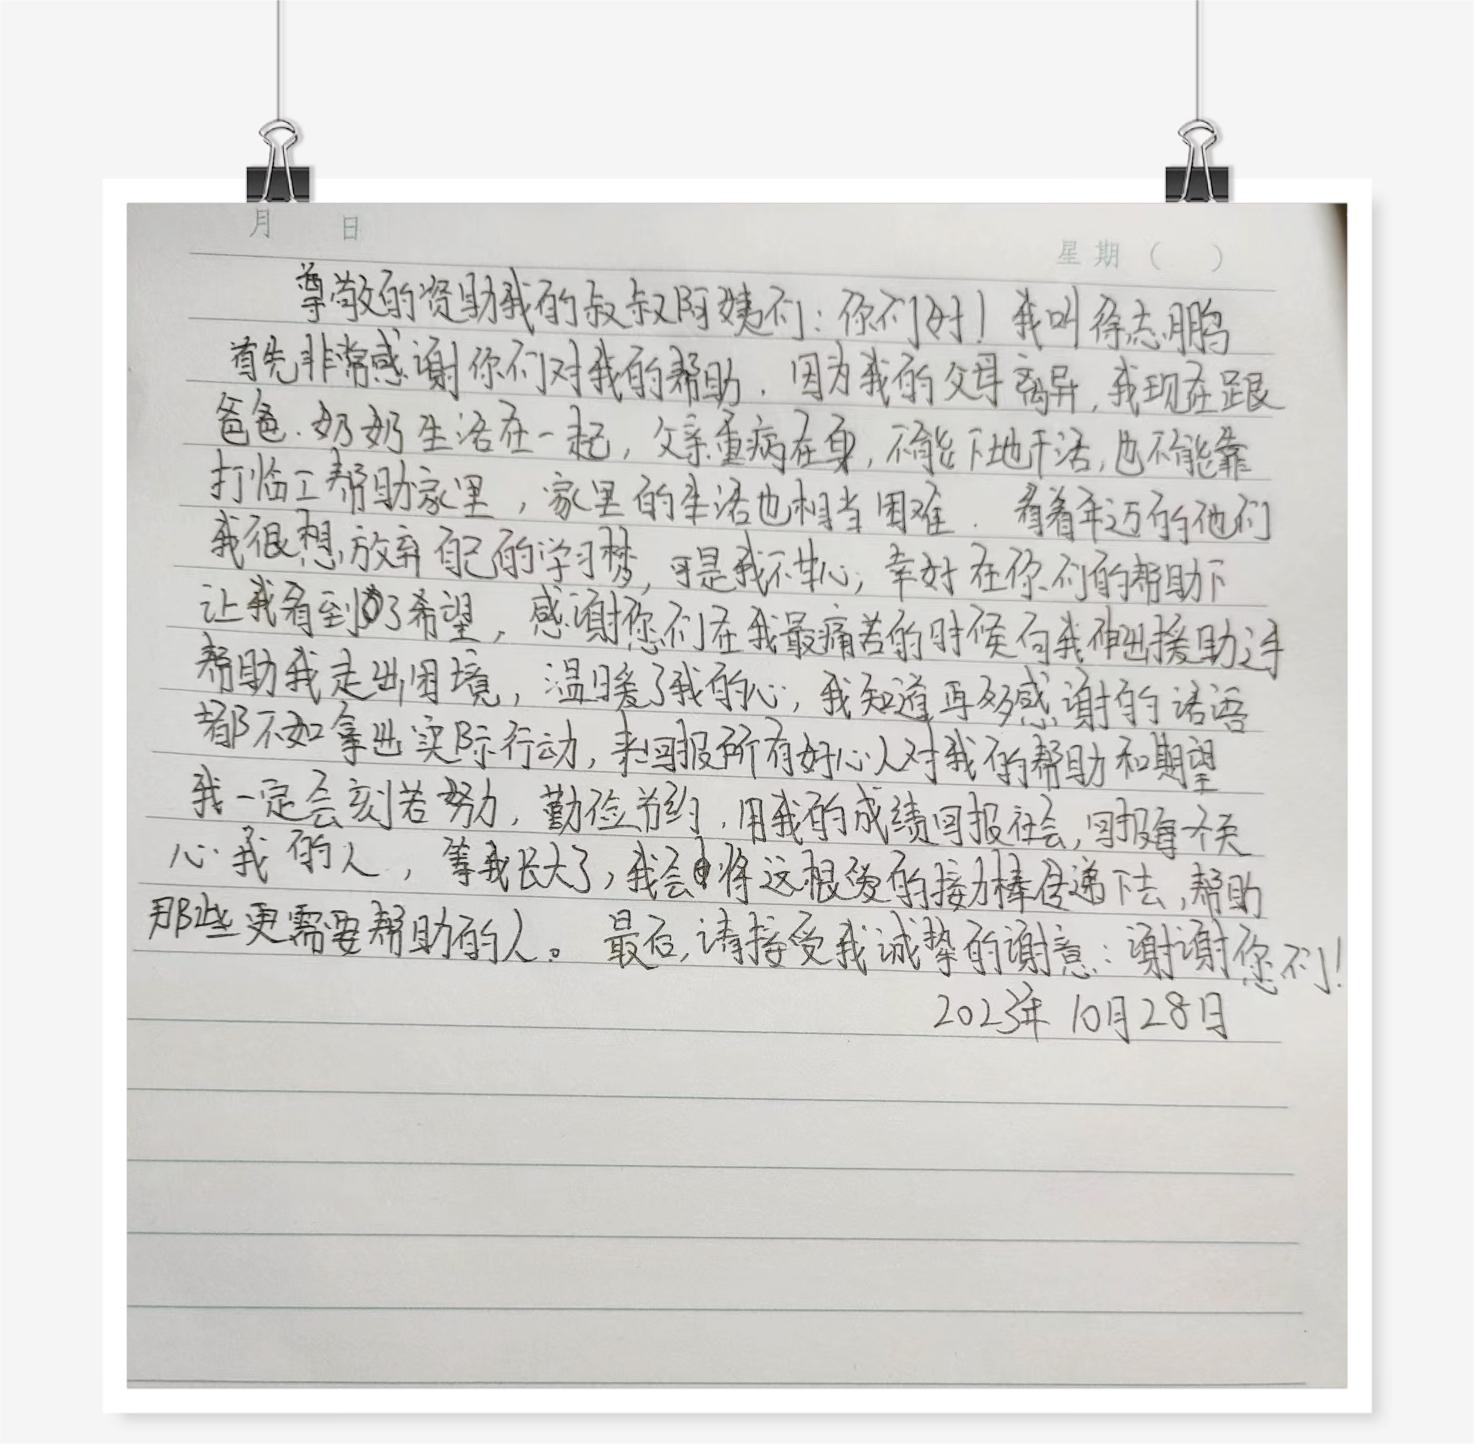 月 日
星期( )
尊敬的资助我的叔叔阿姨们:你们好!我叫徐志鹏
首先非常感谢你们对我的帮助.因为我的父母离异,我现在跟
爸爸.奶奶生活在一起,父亲重病在身,不能下地干活,也不能靠
打临工帮助家里,家里的生活也相当困难.看着年迈的他们
我很想放弃自己的学习梦,可是我不甘心,幸好在你们的帮助下
让我看到了希望,感谢您们在我最痛苦的时候向我伸出援助之手
帮助我走出困境,温暖了我的心,我知道再多感谢的话语
都不如拿出实际行动,来回报所有好心人对我的帮助和期望
我一定会刻苦努力,勤俭节约,用我的成绩回报社会,回报每个关
心我的人,等我长大了,我会将这根爱的接力棒传递下去,帮助
那些更需要帮助的人。最后,请接受我诚挚的谢意:谢谢您们!
2023年10月28日